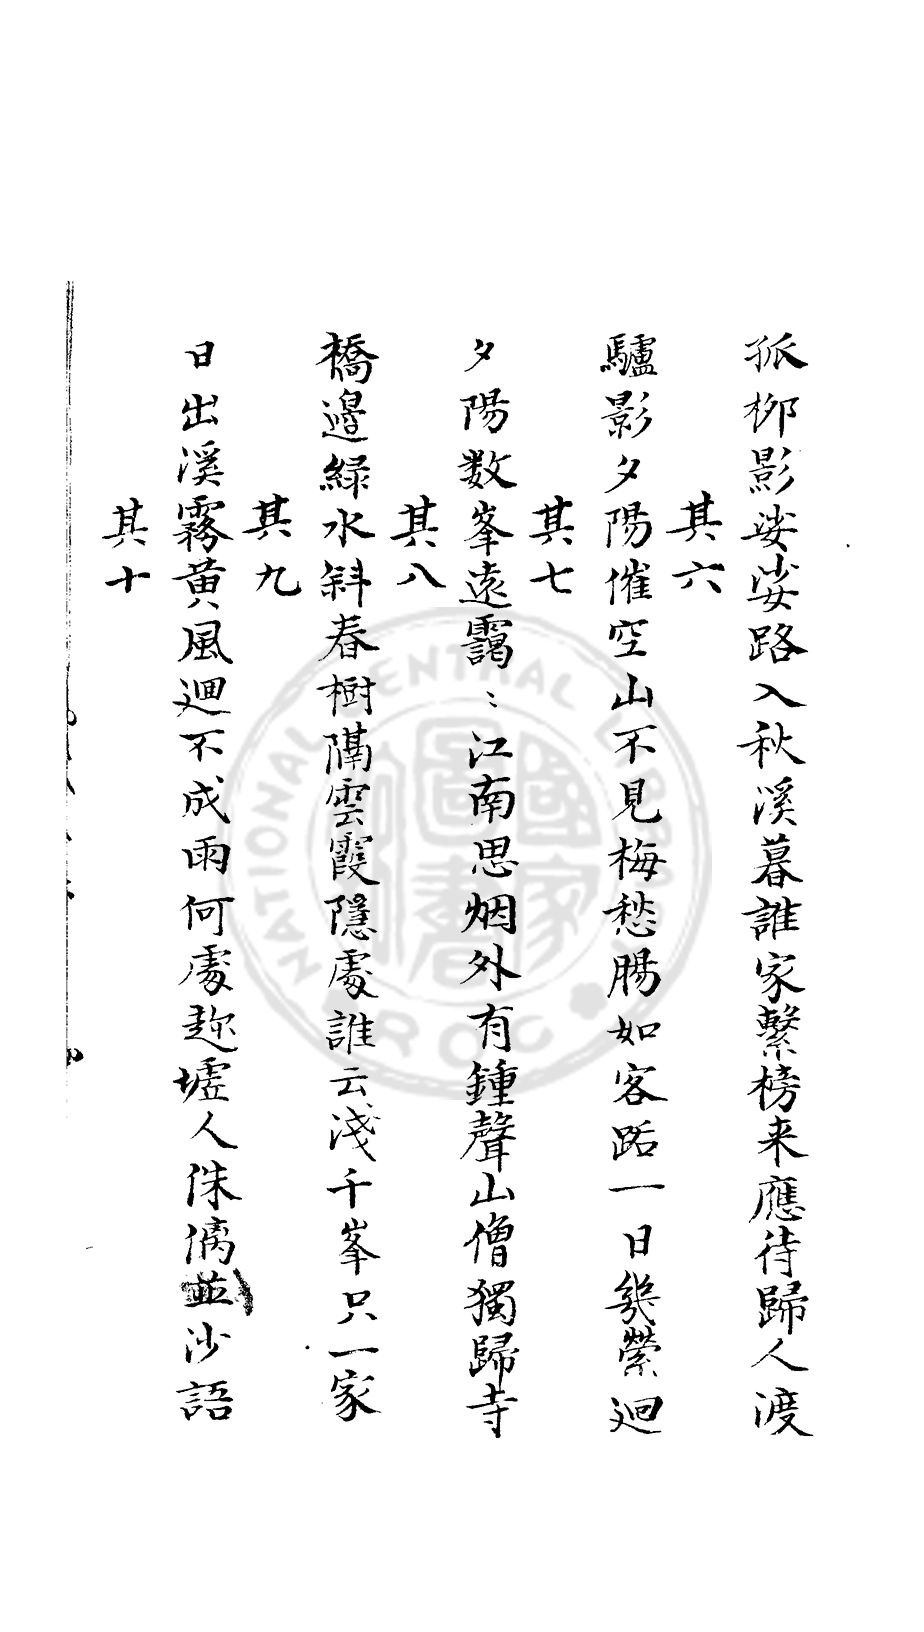 孤栁影娑娑路入秋溪暮誰家繫榜来應待歸人渡
其六
驢影夕陽催空山不見梅愁腸如客路一日幾縈迴
其七
夕陽数峯遠靄〻江南思烟外有鍾聲山僧獨歸寺
其八
橋邉緑水斜春樹隔雲霞隱處誰云淺千峯只一家
其九
日出溪霧黄風迴不成雨何處趂墟人侏㒧並沙語
其十
NATIONAL CENTRAL LIBRARY
ROC
國家圖書館